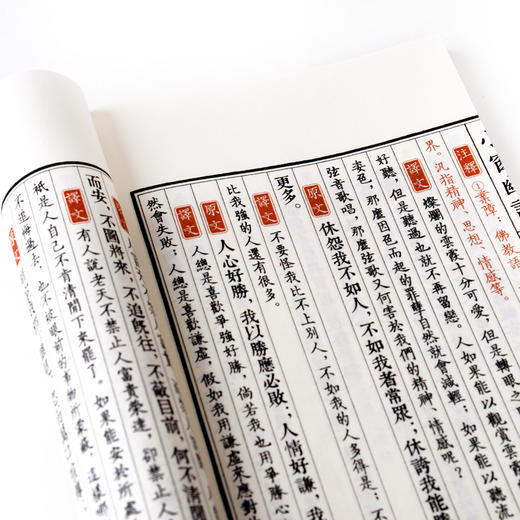 注釋 ①業障：佛教語
界。汎指精神、思想、情感等。
譯文 燦爛的雲霞十分可愛，但是轉眼之
好聽，但是聽過也就不再留戀。人如果能以觀賞雲霞
姿色，那麼因色而起的罪孽自然就會減輕；如果能以聽流
弦音歌唱，那麼弦歌又何害於我們的精神、情感呢？
原文 休怨我不如人，不如我者常眾；休誇我能
更多。
譯文 不要怪我比不上別人，不如我的人多得是；
比我強的人還有很多。
原文 人心好勝，我以勝應必敗；人情好謙，我
譯文 人總是喜歡爭強好勝，倘若我也用爭勝心
然會失敗；人總是喜歡謙虛，假如我用謙虛來應對
而安、不圖將來，不追既往，不蔽目前，何不清閒
譯文 有人說老天不禁止人富貴榮達，卻禁止人
衹是人自己不肯清閒下來罷了。如果能安於所處
不追悔過去，也不被眼前的事物所蒙蔽，這樣